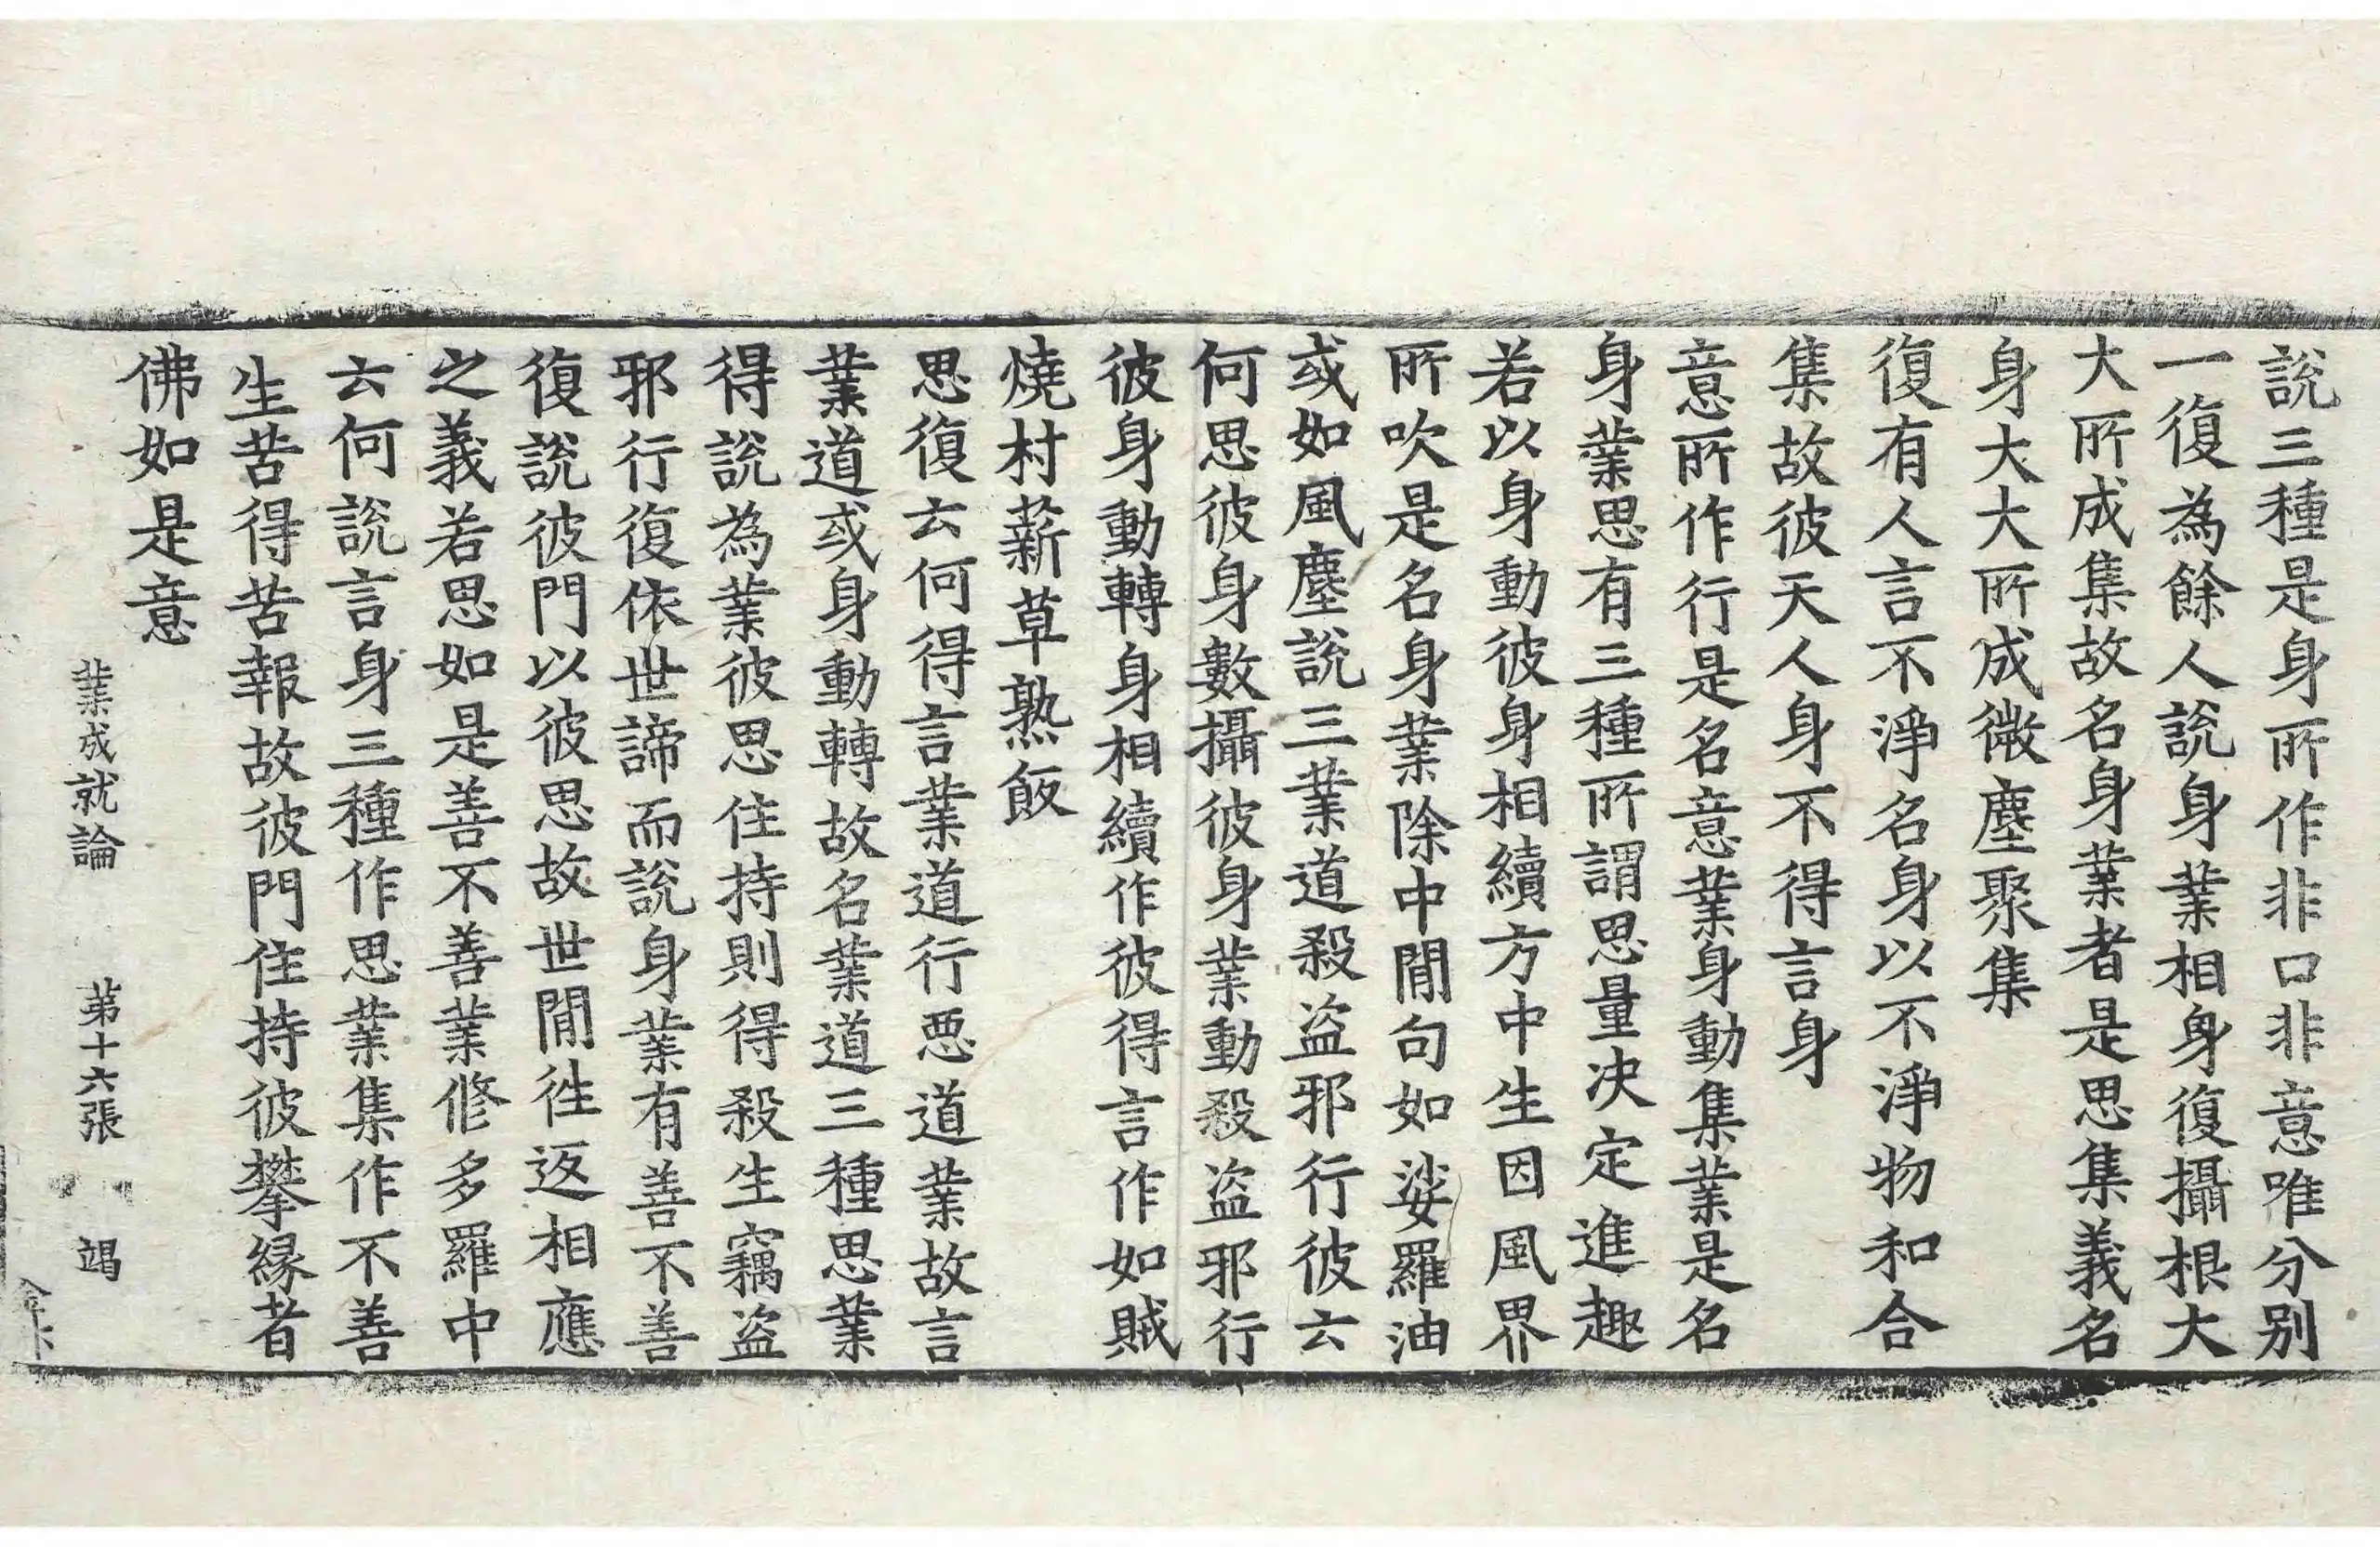 說三種是身所作非口非意唯分别
一復為餘人說身業相身復攝根大
大所成集故名身業者是思集義名
身大大所成微塵聚集
復有人言不淨名身以不淨物和合
集故彼天人身不得言身
意所作行是名意業身動集業是名
身業思有三種所謂思量决定進趣
若以身動彼身相續方中生因風界
所吹是名身業除中閒句如娑羅油
或如風塵說三業道殺盜邪行彼云
何思彼身數攝彼身業動殺盜邪行
彼身動轉身相續作彼得言作如賊
燒村薪草熟飯
思復云何得言業道行惡道業故言
業道或身動轉故名業道三種思業
得說為業彼思住持則得殺生竊盜
邪行復依世諦而說身業有善不善
復說彼門以彼思故世閒徃返相應
之義若思如是善不善業修多羅中
云何說言身三種作思業集作不善
生苦得苦報故彼門住持彼攀縁者
佛如是意
業成就論 第十六張 竭